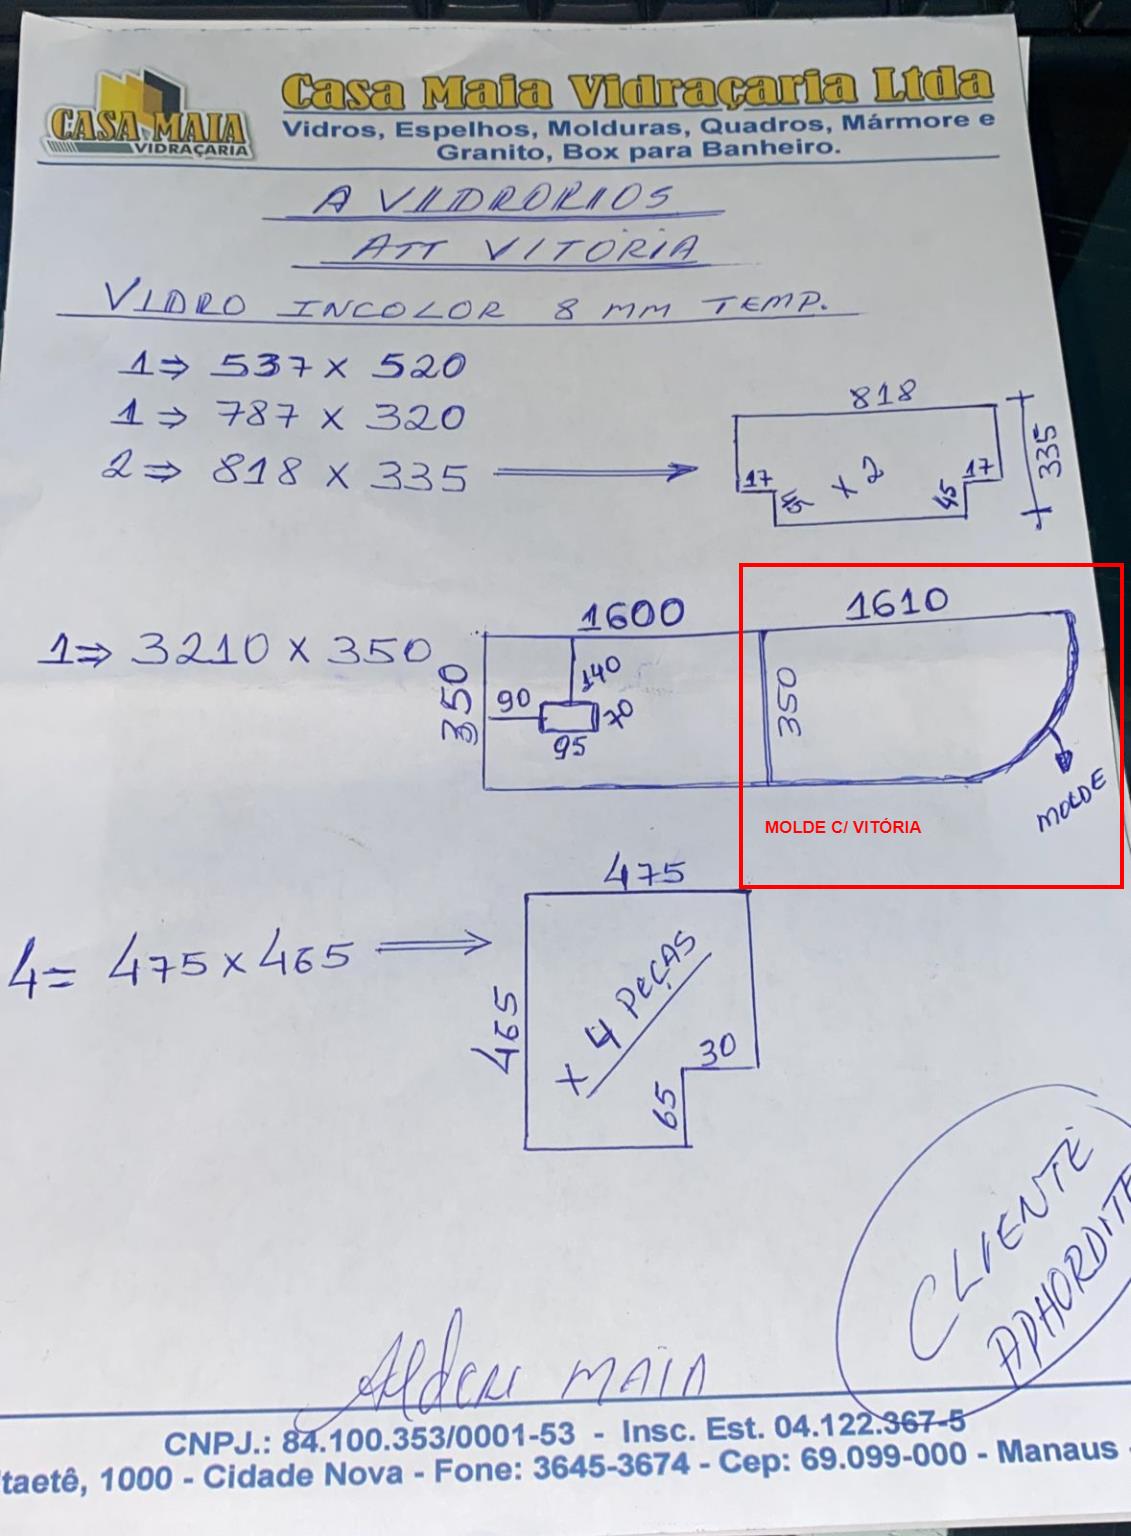 CASA MAIA
VIDRAÇARIA
Casa Maia Vidraçaria Ltda
Vidros, Espelhos, Molduras, Quadros, Mármore e
Granito, Box para Banheiro.
A VIDRORIOS
ATT VITÓRIA
VIDRO INCOLOR 8 MM TEMP.
1⇒ 537 x 520
1⇒ 787 x 320
2⇒ 818 x 335
818
335
17
45
x 2
45
17
1⇒ 3210 x 350
1600
1610
350
90
140
70
95
350
MOLDE
MOLDE C/ VITÓRIA
4= 475 x 465
475
465
x 4 PEÇAS
30
65
CLIENTE
APHORDITE
MAIA
CNPJ.: 84.100.353/0001-53 - Insc. Est. 04.122.367-5
taetê, 1000 - Cidade Nova - Fone: 3645-3674 - Cep: 69.099-000 - Manaus -